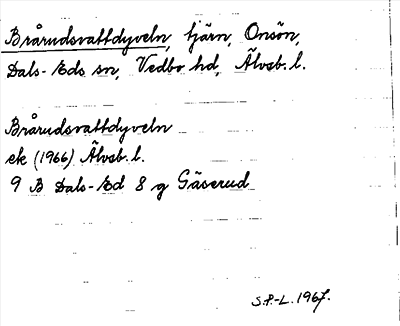 Brårudsvattdyveln, tjärn, Onsön,
Dals-Eds sn, Vedbo hd, Älvsb. l.
Brårudsvattdyveln
ek (1966) Älvsb. l.
9 B Dals-Ed 8 g Gäserud
S.P.-L. 1967.